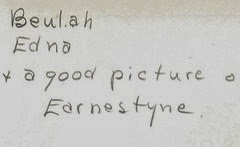 Beulah
Edna
+ a good picture o
Earnestyne.